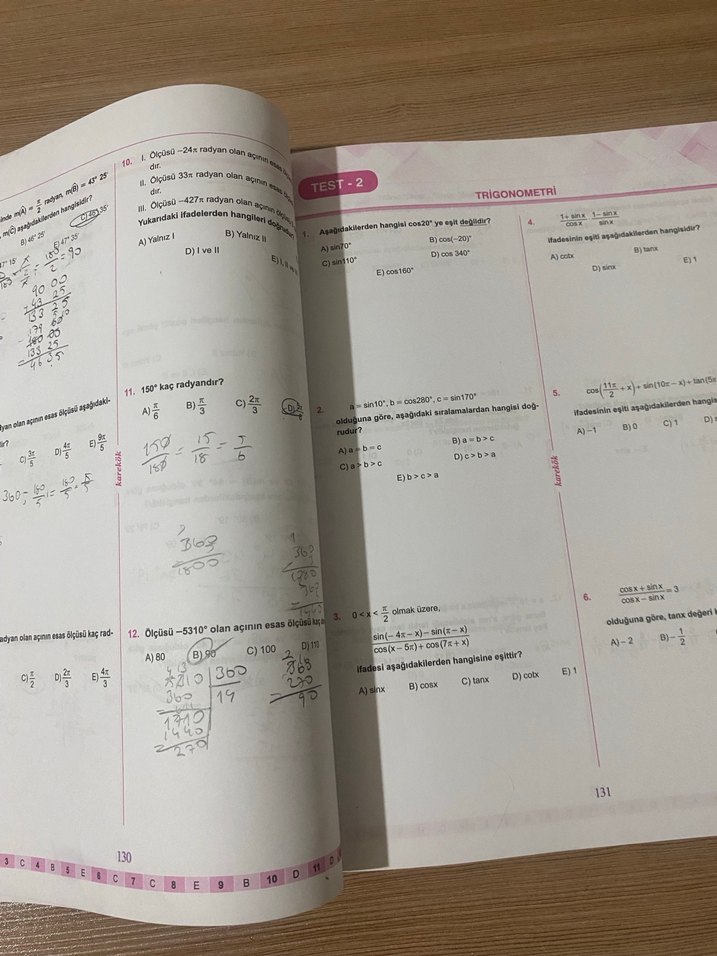 inde m(A) = π/2 radyan, m(B) = 43° 25'
m(C) aşağıdakilerden hangisidir?
B) 46° 25'
C) 46° 35'
47° 15'
E) 47° 35'
180/2 = 90
133 25
179 60
133 25
46 35
dyan olan açının esas ölçüsü aşağıdaki-
ir?
C) 3π/5
D) 4π/5
E) 9π/5
360
adyan olan açının esas ölçüsü kaç rad-
C) π/2
D) 2π/3
E) 4π/3
10. I. Ölçüsü −24π radyan olan açının esas
dır.
II. Ölçüsü 33π radyan olan açının esas
dır.
III. Ölçüsü −427π radyan olan açının
Yukarıdaki ifadelerden hangileri
A) Yalnız I
B) Yalnız II
D) I ve II
11. 150° kaç radyandır?
A) π/6
B) π/3
C) 2π/3
D) 5π/6
150/180 = 15/18 = 5/6
1800
12. Ölçüsü −5310° olan açının esas ölçüsü kaç
A) 80
B) 90
C) 100
D) 110
5310 360
360 14
1710
1440
270
360
270
90
karekök
130
3 C 4 B 5 E 6 C 7 C 8 E 9 B 10 D 11 D
TEST - 2
TRİGONOMETRİ
1. Aşağıdakilerden hangisi cos20° ye eşit değildir?
A) sin70°
B) cos(−20)°
C) sin110°
D) cos 340°
E) cos160°
2. a = sin10°, b = cos280°, c = sin170°
olduğuna göre, aşağıdaki sıralamalardan hangisi doğ-
rudur?
A) a = b = c
B) a = b > c
C) a > b > c
D) c > b > a
E) b > c > a
3. 0 < x < π/2 olmak üzere,
sin(−4π − x) − sin(π − x)
cos(x − 5π) + cos(7π + x)
ifadesi aşağıdakilerden hangisine eşittir?
A) sinx
B) cosx
C) tanx
D) cotx
E) 1
karekök
4. 1 + sinx/cosx · 1 − sinx/sinx
ifadesinin eşiti aşağıdakilerden hangisidir?
A) cotx
B) tanx
D) sinx
E) 1
5. cos(11π/2 + x) + sin(10π − x) + tan(5π
ifadesinin eşiti aşağıdakilerden
A) −1
B) 0
C) 1
D)
6. cosx + sinx/cosx − sinx = 3
olduğuna göre, tanx değeri
A) − 2
B) − 1/2
131